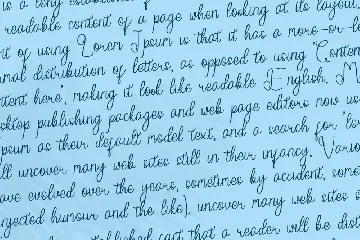 is a long established f
readable content of a page when looking at its layou
t of using Lorem Ipsum is that it has a more-or-l
mal distribution of letters, as opposed to using 'Conten
tent here', making it look like readable English. M
sktop publishing packages and web page editors now us
psum as their default model text, and a search for 'lor
ll uncover many web sites still in their infancy. Vario
ave evolved over the years, sometimes by accident, some
injected humour and the like), uncover many web sites s
established fact that a reader will be dist